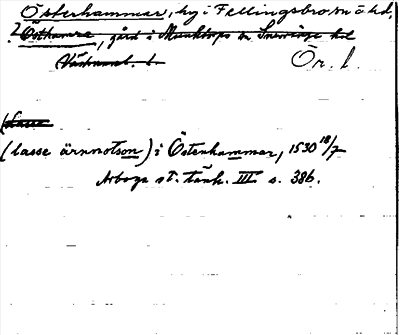 Österhammar, by i Fellingsbro sn o hd,
? Östhamra, gård i Munktorps sn Snevringe hd
Västmanl. l.
Ör. l.
(Lasse
(lasse ärnnotson) i Östenhammar, 1530 18/7
Arboga st. tänk. III s. 386.